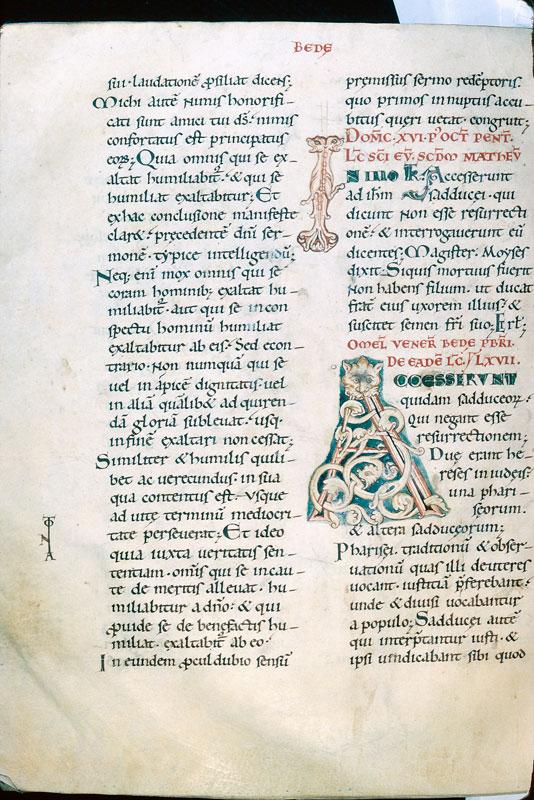 BEDE
sui · laudationē ꝓsiliat dicens;
Michi autē nimis honorifi-
cati sunt amici tui ds̄ · nimis
confortatus est principatus
eoꝝ; Quia omnis qui se ex-
altat humiliabit᷑ · & qui se
humiliat exaltabitur; Et
ex hac conclusione manifeste
claret p̄cedentē dn̄i ser-
monē · typice intelligendū;
Neq; eni mox omnis qui se
coram hominib; exaltat hu-
miliabit᷑ · aut qui se in con
spectu hominū humiliat
exaltabitur ab eis · Sed econ-
trario · Non numquā qui se
uel in apice dignitatis · uel
in aliā qualib& adquiren-
da gloriā subleuat · usq;
in finē exaltari non cessat;
Similiter & humilis quili-
bet ac uerecundus · in sua
qua contentus est · Vsque
ad uite terminū mediocri-
tate perseuerat; Et ideo
quia iuxta ueritatis sen-
tentiam · om̄is qui se incau-
te de mertis alleuat · hu-
miliabitur a dn̄o; & qui
ꝓuide se de benefactis hu-
miliat · exaltabit᷑ ab eo ·
In eundem ꝓcul dubio sensū
premissus sermo redēptoris ·
quo primos in nuptiis accu-
bitus queri uetat · congruit;
DOM̄C · XVI · P' OCT̄ PENT̄ ·
LC̄ SCI EV̄ · SC̄DM MATHEV̄
IN illo t̄r · Accesserunt
ad ih̄m Sadducei · qui
dicunt non esse resurrecti
onē · & interrogauerunt eū
dicentes; Magister · Moyses
dixit · Si quis mortuus fuerit
non habens filium · ut ducat
frat̄ eius uxorem illius · &
suscitet semen fr̄i suo; Et rł;
OMEL̄ VENER̄ BEDE PB̄RI ·
DE EADĒ LC̄ · LXVII ·
ACCESSERUNT
quidam sadduceoꝝ ·
Qui negant esse
resurrectionem;
Due erant he-
reses in iudeis ·
una phari-
seorum ·
& altera sadduceorum;
Pharisei · traditionū & obser-
uationū quas illi deuteres
uocant · iustitiā p̄ferebant ·
unde & diuisi uocabantur
a populo; Sadducei autē
qui interp̄tantur iusti · &
ipsi uindicabant sibi quod